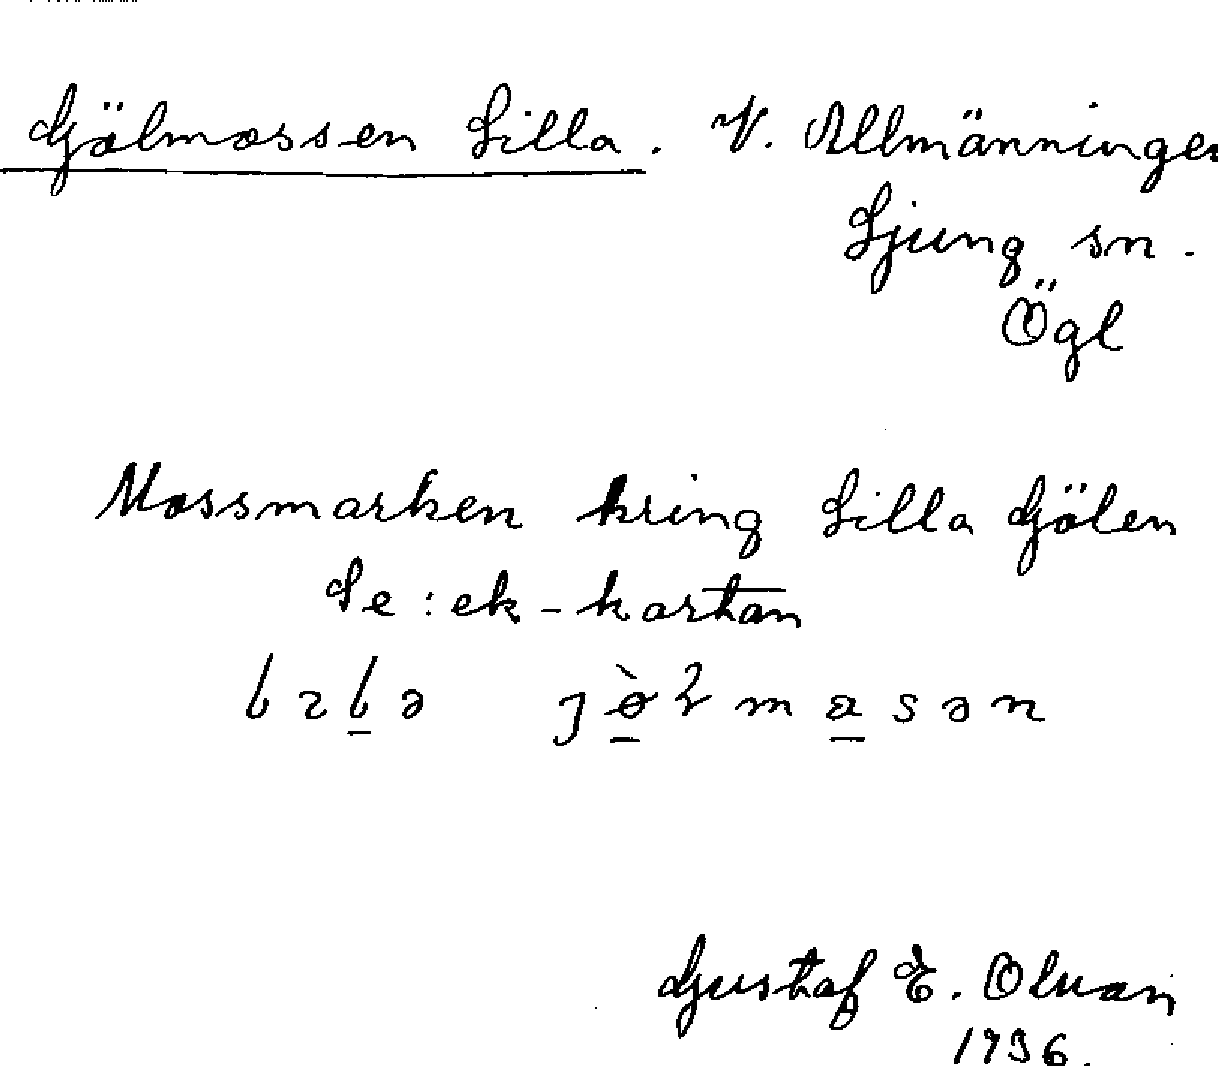 Gölmossen Lilla. V. Allmänningen
Ljung sn.
Ögl
Mossmarken kring Lilla Gölen
Se: ek-kartan
Gustaf E. Olvan
1936.